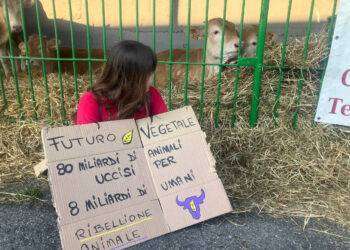 FUTURO VEGETALE
80 MILIARDI DI ANIMALI
UCCISI PER
8 MILIARDI DI UMANI
RIBELLIONE
ANIMALE